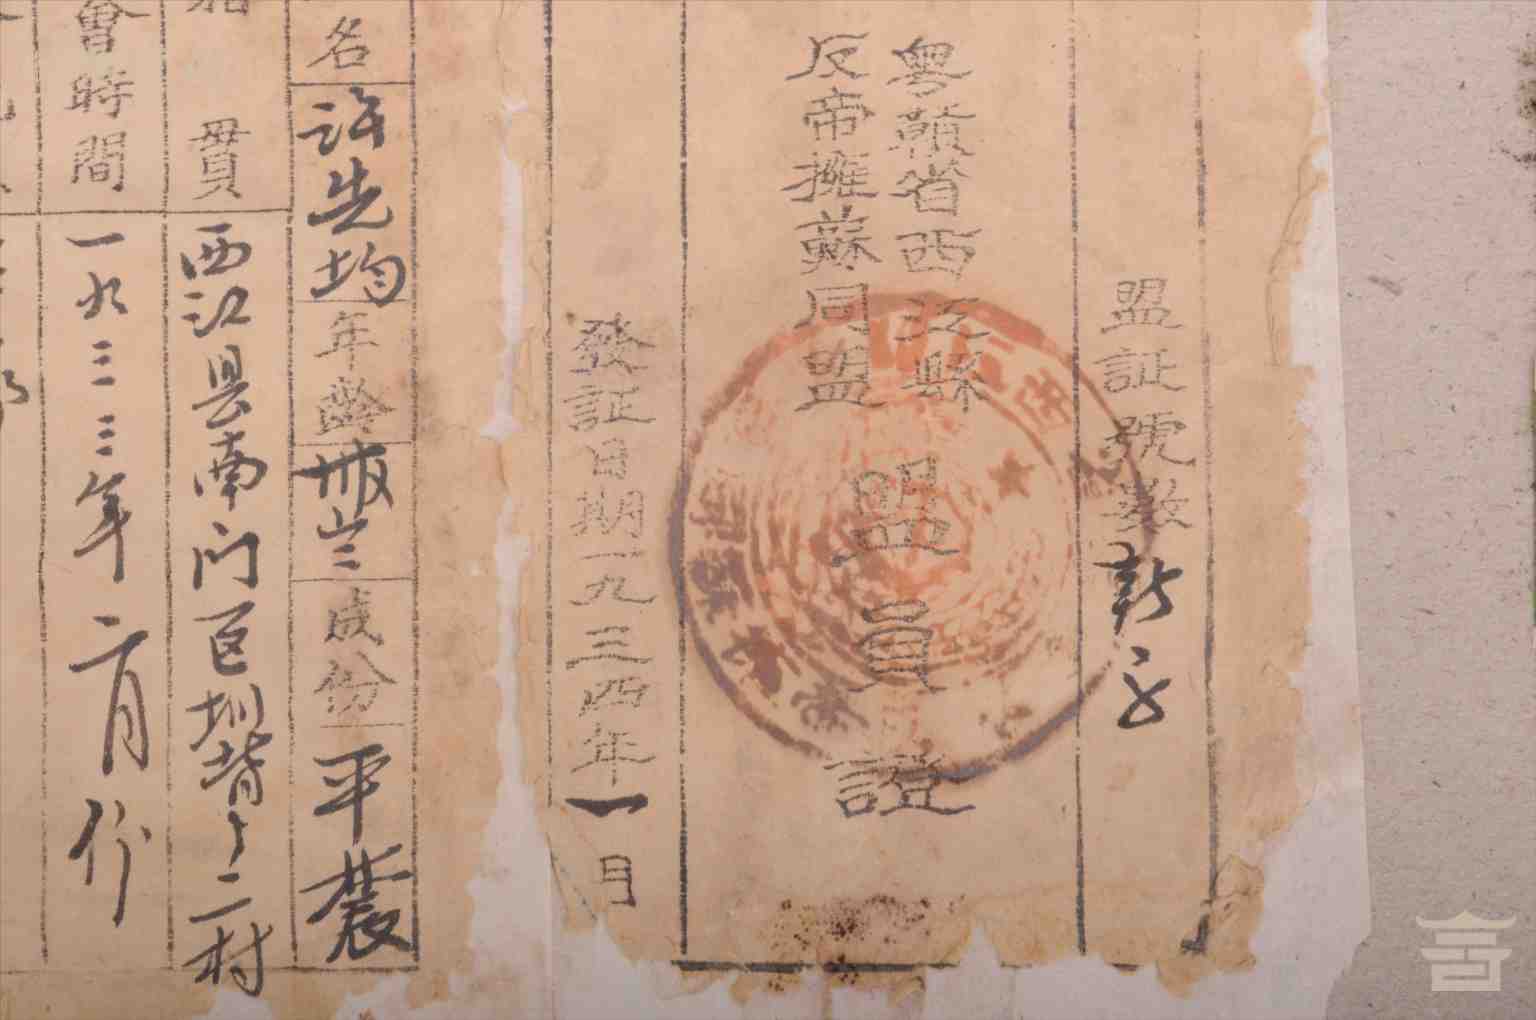 盟証號数
粤贛省西江縣
反帝擁蘇同盟
盟員證
發証日期一九三四年一月
名 許先均 年齡 成份 平農
貫 西江县南门区圳背十二村
會時間 一九三三年二月份